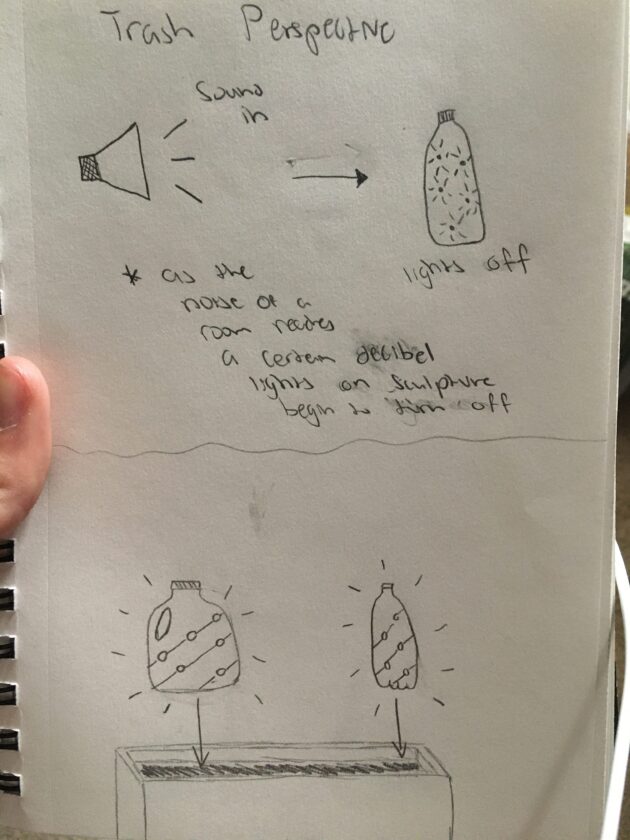 Trash Perspective
Sound
in
lights off
* as the
noise of a
room reaches
a certain decibel
lights on sculpture
begin to turn off